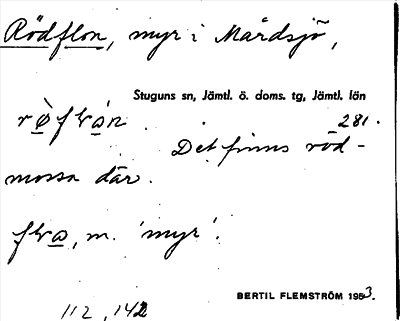 Rödflon, myr i Mårdsjö,
Stuguns sn, Jämtl. ö. doms. tg, Jämtl. län
281.
Det finns röd-
mossa där.
m. 'myr'.
BERTIL FLEMSTRÖM 1953.
112, 142